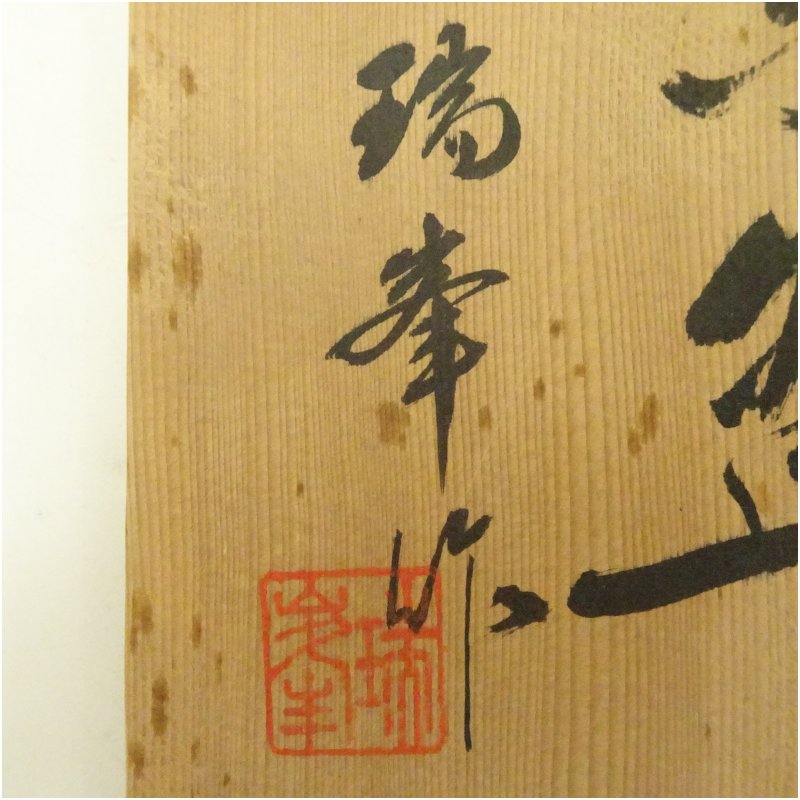 瑞峯作
瑞峯